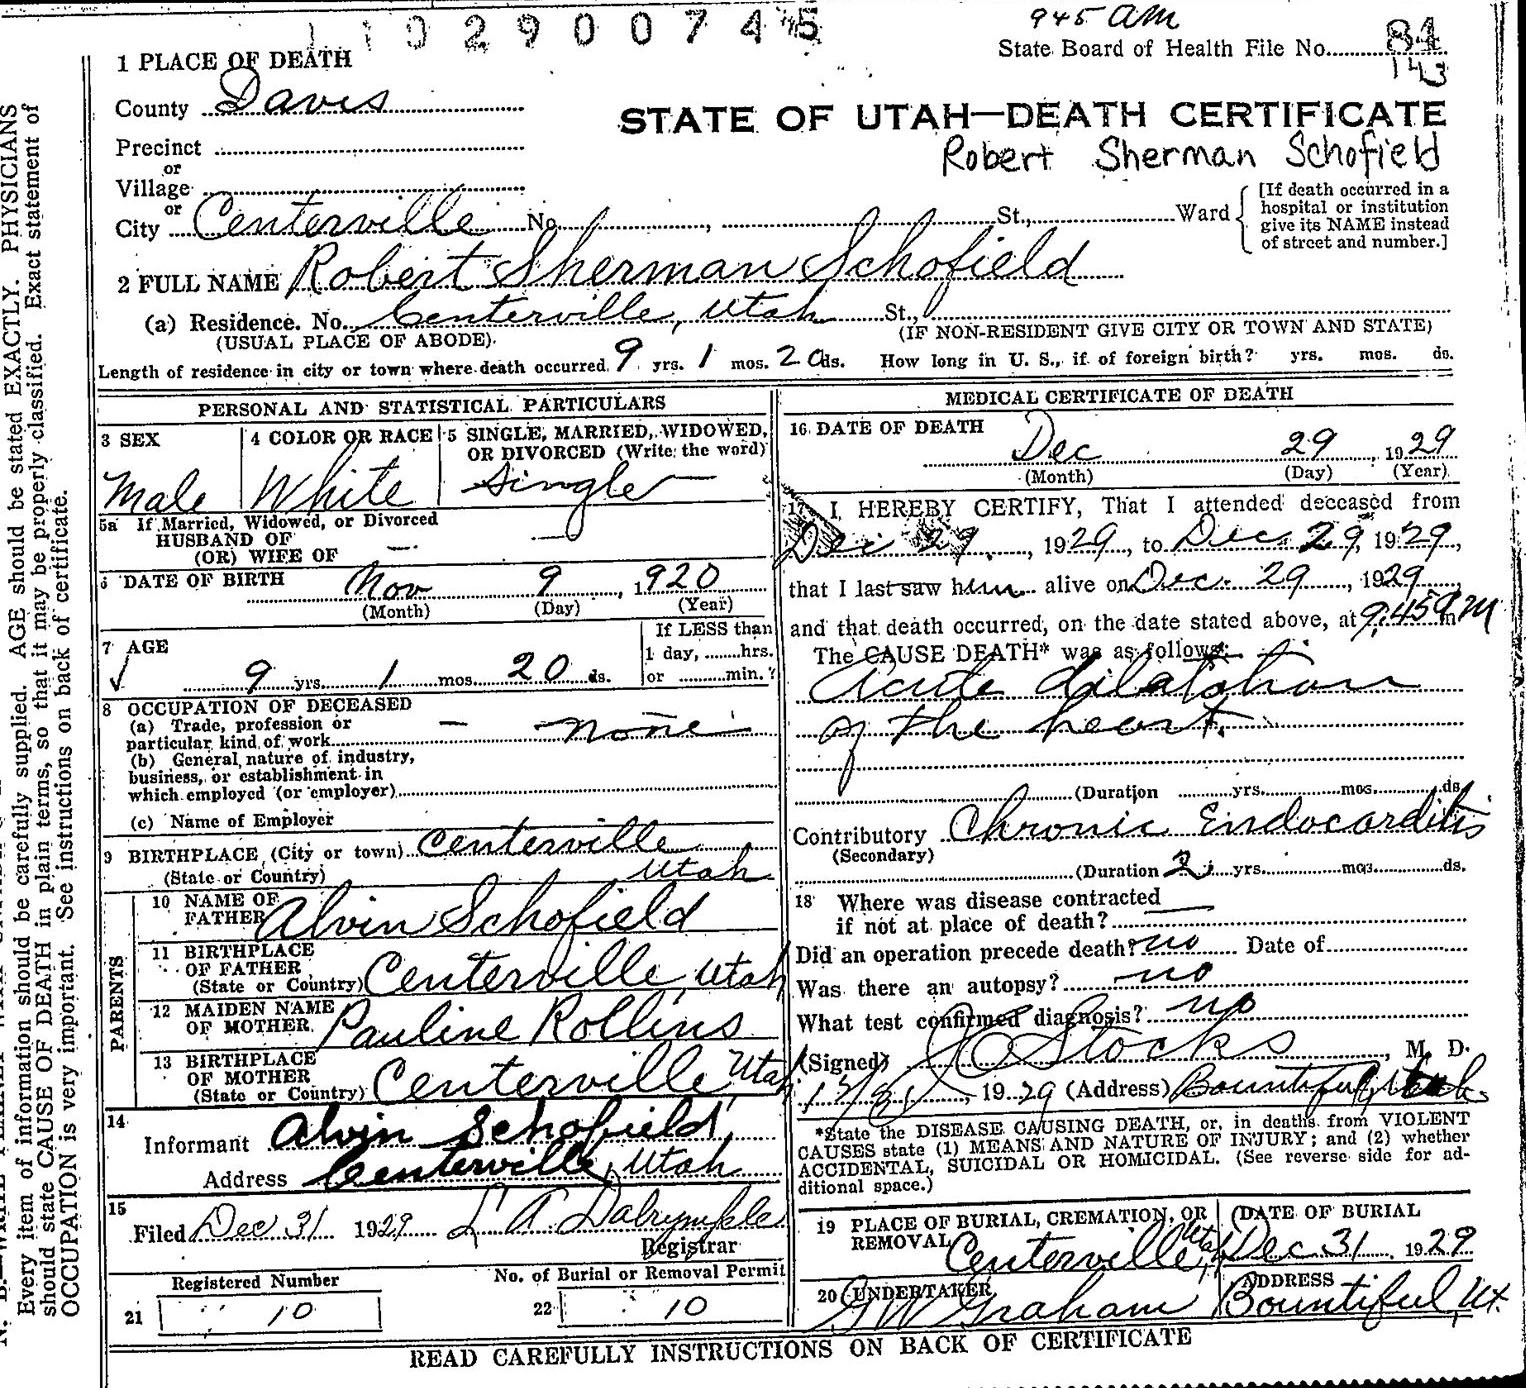 1 1 0 2 9 0 0 7 4 5
945 am
State Board of Health File No. 84
143
1 PLACE OF DEATH
County Davis
STATE OF UTAH—DEATH CERTIFICATE
Robert Sherman Schofield
Precinct
or
Village
or
City Centerville No. , St., Ward
[If death occurred in a
hospital or institution
give its NAME instead
of street and number.]
2 FULL NAME Robert Sherman Schofield
(a) Residence. No. Centerville, Utah St.,
(USUAL PLACE OF ABODE)
(IF NON-RESIDENT GIVE CITY OR TOWN AND STATE)
Length of residence in city or town where death occurred 9 yrs. 1 mos. 20 ds. How long in U. S., if of foreign birth? yrs. mos. ds.
PERSONAL AND STATISTICAL PARTICULARS
3 SEX
Male
4 COLOR OR RACE
White
5 SINGLE, MARRIED, WIDOWED,
OR DIVORCED (Write the word)
Single
5a If Married, Widowed, or Divorced
HUSBAND OF
(OR) WIFE OF — —
6 DATE OF BIRTH Nov 9, 1920
(Month) (Day) (Year)
7 AGE
9 yrs. 1 mos. 20 ds.
If LESS than
1 day, ....... hrs.
or ......... min.?
8 OCCUPATION OF DECEASED
(a) Trade, profession or
particular kind of work — none
(b) General nature of industry,
business, or establishment in
which employed (or employer)
(c) Name of Employer
9 BIRTHPLACE (City or town) Centerville
(State or Country) Utah
PARENTS
10 NAME OF
FATHER Alvin Schofield
11 BIRTHPLACE
OF FATHER
(State or Country) Centerville, Utah
12 MAIDEN NAME
OF MOTHER Pauline Rollins
13 BIRTHPLACE
OF MOTHER
(State or Country) Centerville, Utah
14
Informant Alvin Schofield
Address Centerville, Utah
15
Filed Dec 31 1929 L A Dalrymple
Registrar
Registered Number
21 10
No. of Burial or Removal Permit
22 10
MEDICAL CERTIFICATE OF DEATH
16 DATE OF DEATH
Dec 29, 1929
(Month) (Day) (Year)
17 I HEREBY CERTIFY, That I attended deceased from
Dec 29, 1929, to Dec 29, 1929,
that I last saw him alive on Dec. 29, 1929,
and that death occurred, on the date stated above, at 9:45 m
The CAUSE DEATH* was as follows:
Acute dilatation
of the heart.
(Duration yrs. mos. ds.
Contributory Chronic Endocarditis
(Secondary)
(Duration 2 yrs. mos. ds.
18 Where was disease contracted
if not at place of death? —
Did an operation precede death? no Date of
Was there an autopsy? no
What test confirmed diagnosis? no
(Signed) Stocks, M. D.
12/31, 1929 (Address) Bountiful, Utah
*State the DISEASE CAUSING DEATH, or, in deaths from VIOLENT
CAUSES state (1) MEANS AND NATURE OF INJURY; and (2) whether
ACCIDENTAL, SUICIDAL OR HOMICIDAL. (See reverse side for ad-
ditional space.)
19 PLACE OF BURIAL, CREMATION, OR
REMOVAL Centerville, Utah
DATE OF BURIAL
Dec 31, 1929
20 UNDERTAKER
G W Graham
ADDRESS
Bountiful, Ut.
READ CAREFULLY INSTRUCTIONS ON BACK OF CERTIFICATE
Every item of information should be carefully supplied. AGE should be stated EXACTLY. PHYSICIANS
should state CAUSE OF DEATH in plain terms, so that it may be properly classified. Exact statement of
OCCUPATION is very important. See instructions on back of certificate.